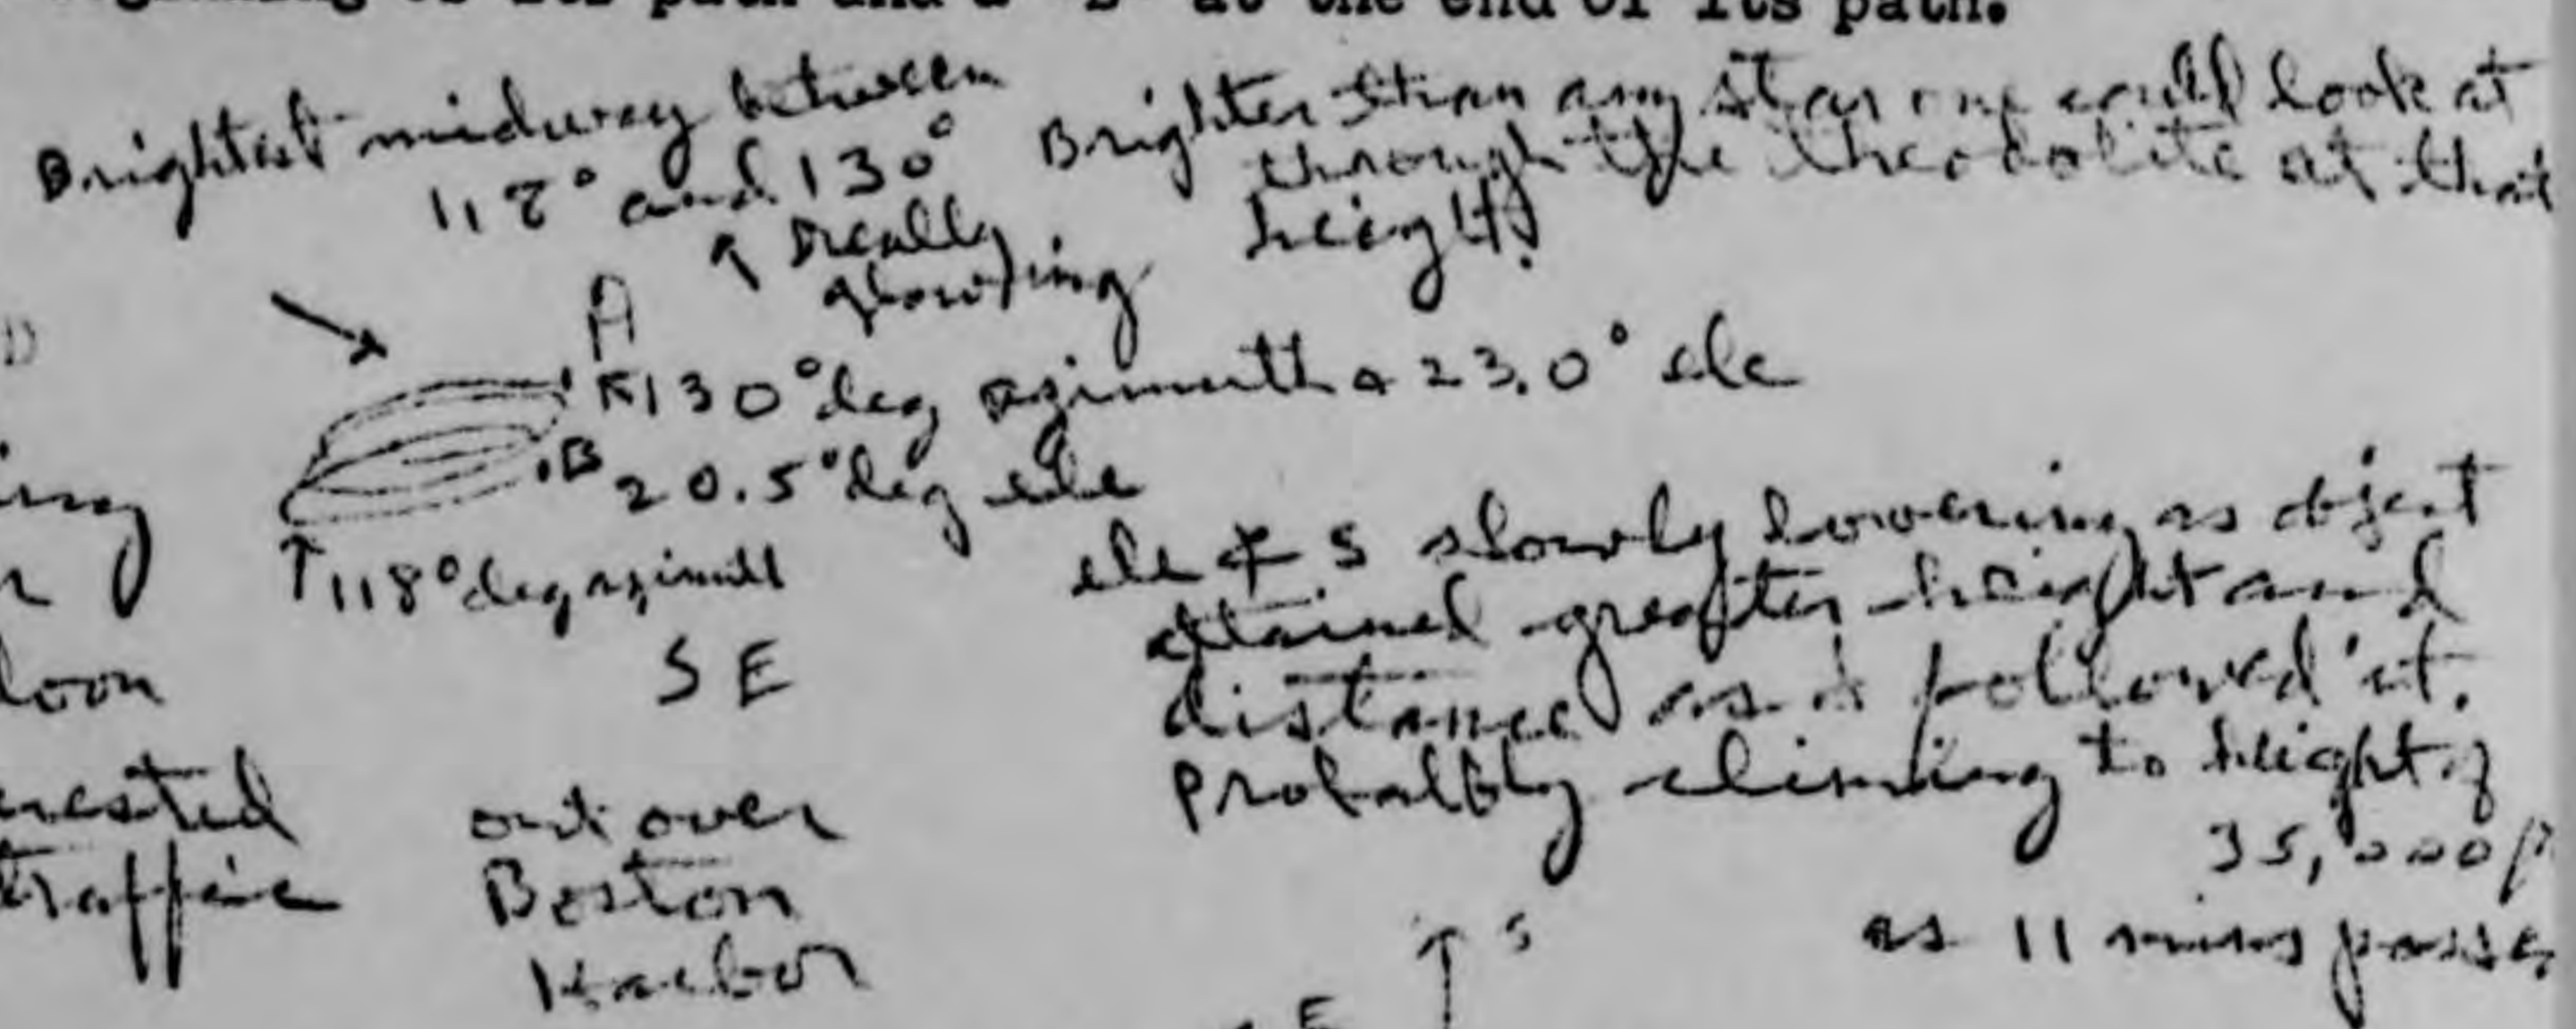 beginning of its path and a "B" at the end of its path.
Brightest midway between
118° and 130°
really
glowing
Brighter than any star one could look at
through the theodolite at that
height!
A
130° deg azimuth & 23.0° ele
B 20.5° deg ele
118° deg azimuth
SE
out over
Boston
Harbor
slowly lowering as object
attained greater height and
distance as I followed it.
Probably climbing to height of
35,000
as 11 mins passed
S
E
ing
loon
traffic